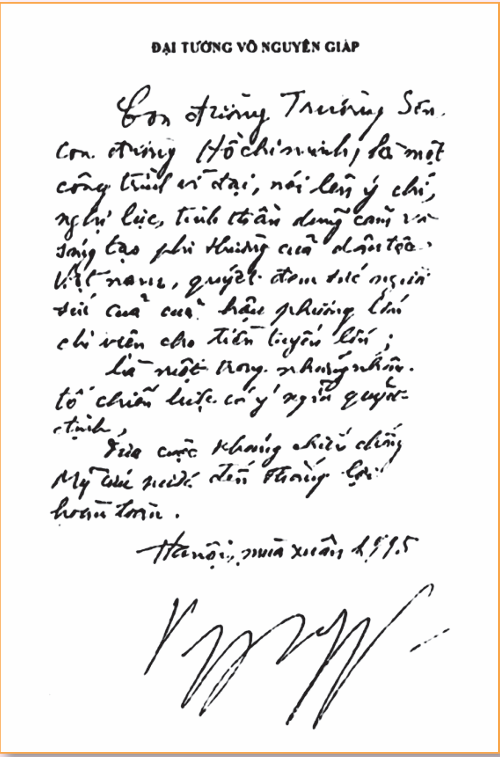 ĐẠI TƯỚNG VÕ NGUYÊN GIÁP
Con đường Trường Sơn,
con đường Hồ Chí Minh, là một
công trình vĩ đại, nói lên ý chí,
nghị lực, tinh thần dũng cảm và
sáng tạo phi thường của dân tộc
Việt nam, quyết đem sức người
sức của của hậu phương lớn
chi viện cho tiền tuyến lớn ;
là một trong những nhân
tố chiến lược có ý nghĩa quyết
định,
đưa cuộc kháng chiến chống
Mỹ cứu nước đến thắng lợi
hoàn toàn .
Hà nội, mùa xuân 1995